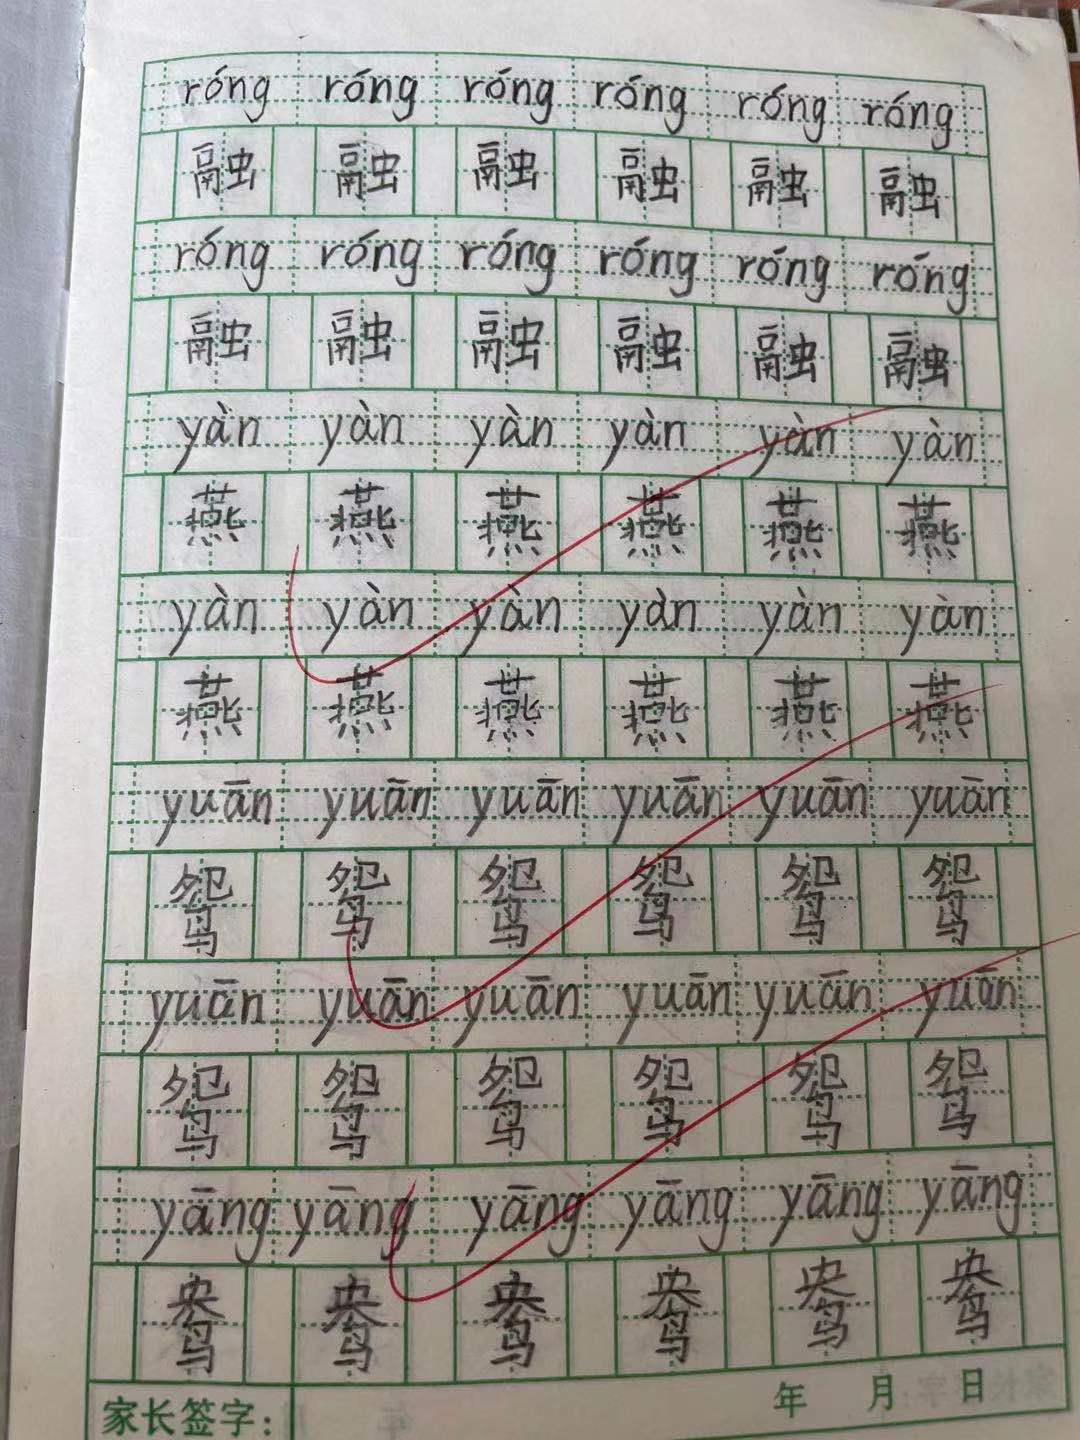 róng róng róng róng róng róng
融 融 融 融 融 融
róng róng róng róng róng róng
融 融 融 融 融 融
yàn yàn yàn yàn yàn yàn
燕 燕 燕 燕 燕 燕
yàn yàn yàn yàn yàn yàn
燕 燕 燕 燕 燕 燕
yuān yuān yuān yuān yuān yuān
鸳 鸳 鸳 鸳 鸳 鸳
yuān yuān yuān yuān yuān yuān
鸳 鸳 鸳 鸳 鸳 鸳
yāng yāng yāng yāng yāng yāng
鸯 鸯 鸯 鸯 鸯 鸯
家长签字： 年 月 日